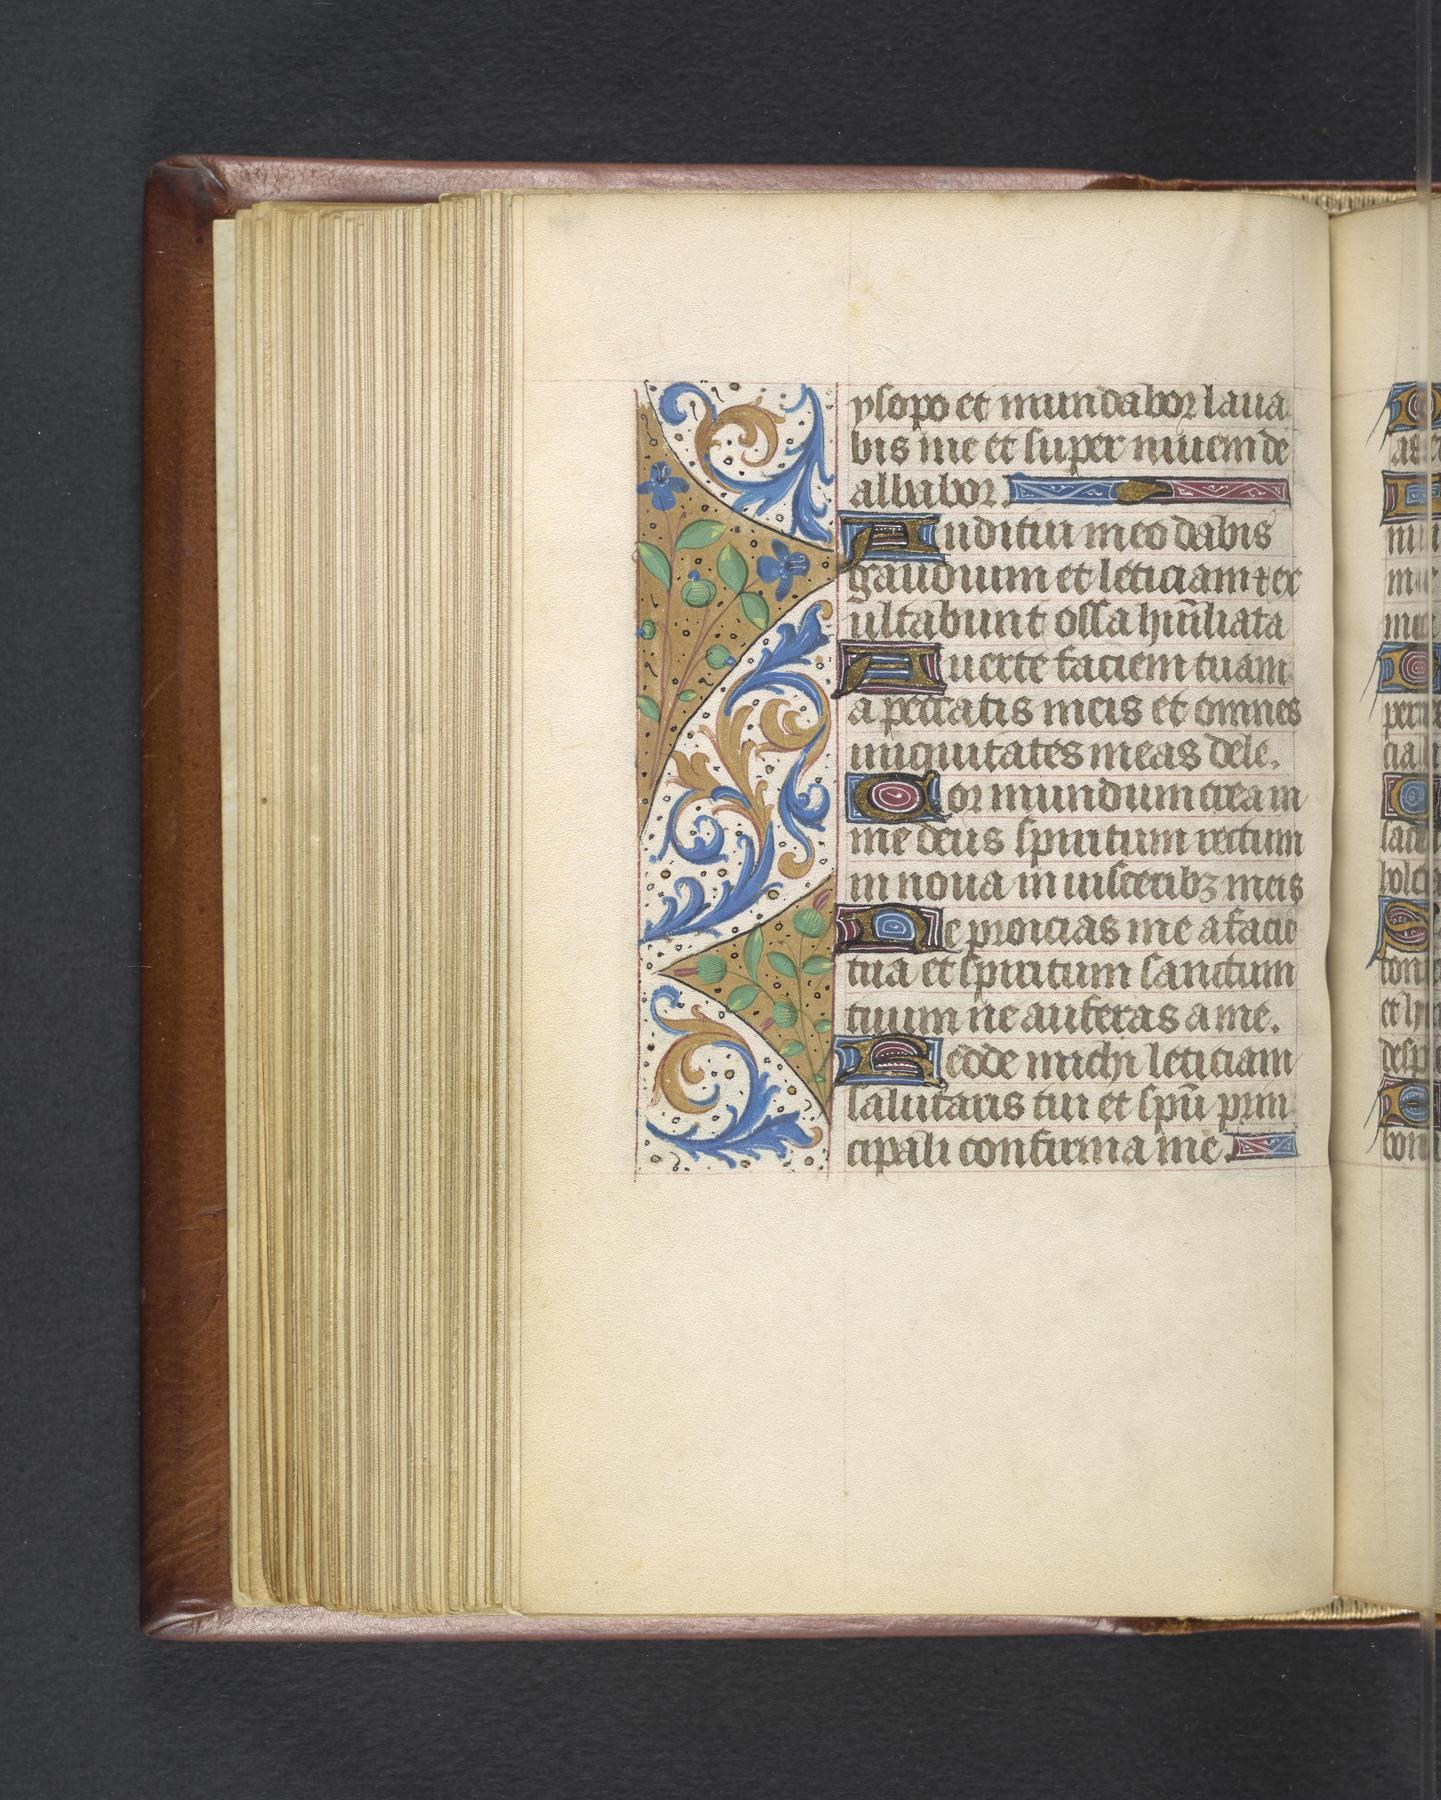 ysopo et mundabor laua
bis me et super niuem de
albabor.
Auditui meo dabis
gaudium et leticiam ⁊ ex
ultabunt ossa humiliata
Auerte faciem tuam
a peccatis meis et omnes
iniquitates meas dele.
Cor mundum crea in
me deus spiritum rectum
in noua in uisceribꝫ meis
Ne proicias me a facie
tua et spiritum sanctum
tuum ne auferas a me.
Redde michi leticiam
salutaris tui et spũ prin
cipali confirma me.